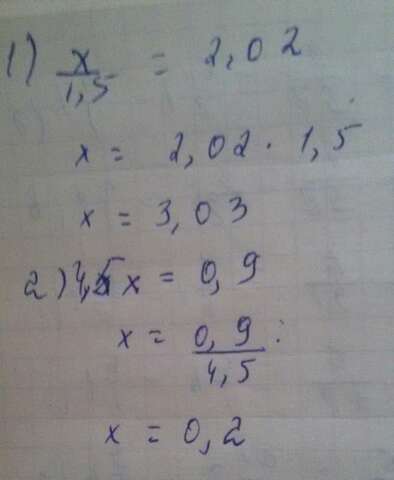 1) x/1,5 = 2,02
x = 2,02 · 1,5
x = 3,03
2) 4,5 x = 0,9
x = 0,9/4,5
x = 0,2